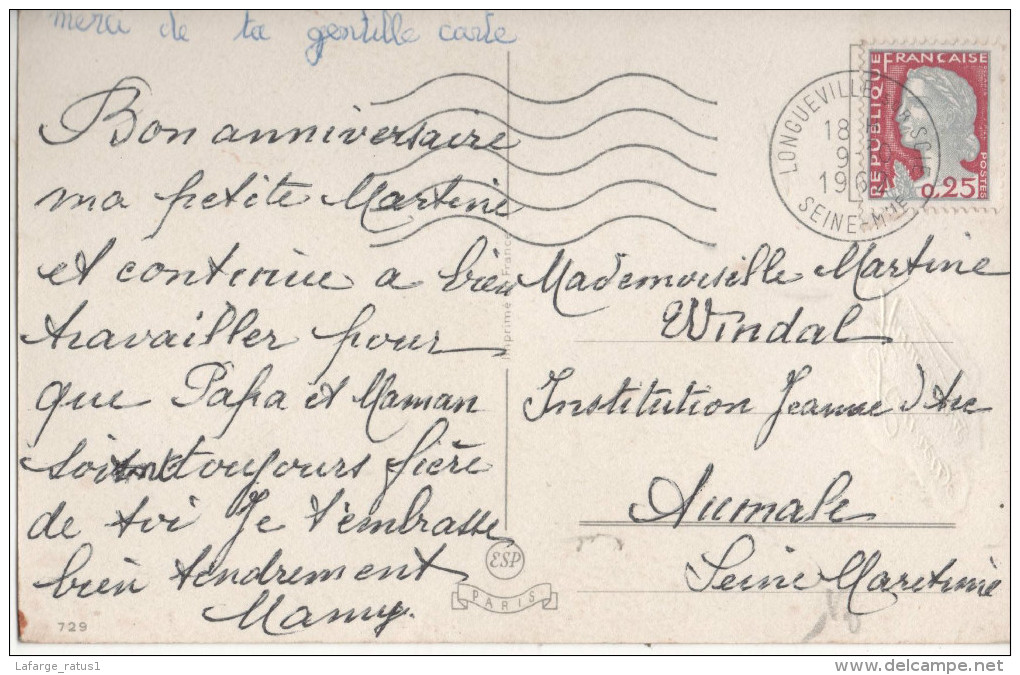 merci de ta gentille carte
Bon anniversaire
ma petite Martine
et continue a bien
travailler pour
que Papa et Maman
soient toujours fière
de toi Je t'embrasse
bien tendrement
Mamy.
729
Imprimé en France
ESP
PARIS
REPUBLIQUE FRANÇAISE
0,25
POSTES
LONGUEVILLE S SCIE
18
9
196
SEINE-MME
Mademoiselle Martine
Windal
Institution Jeanne d'Arc
Aumale
Seine Maretime
Lafarge_ratus1
www.delcampe.net